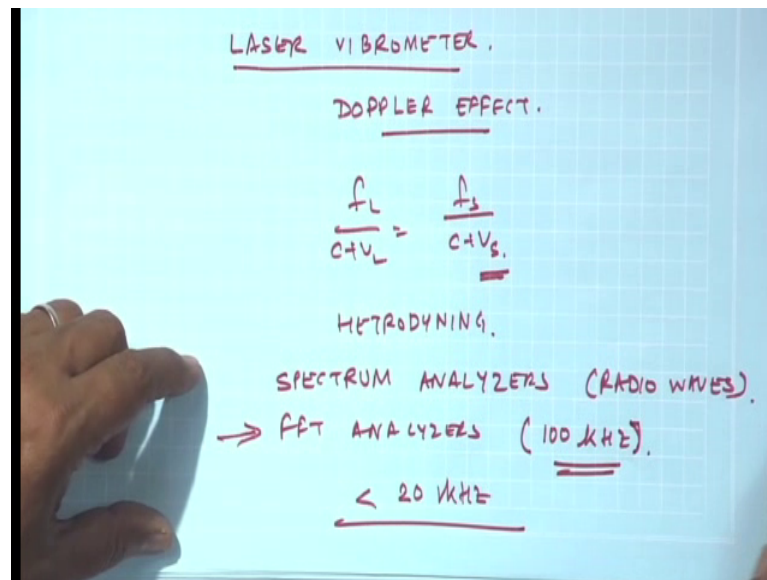 LASER VIBROMETER.
DOPPLER EFFECT.
fL / C+VL = fs / C+VS.
HETRODYNING.
SPECTRUM ANALYZERS (RADIO WAVES).
→ FFT ANALYZERS (100 kHz).
< 20 kHz